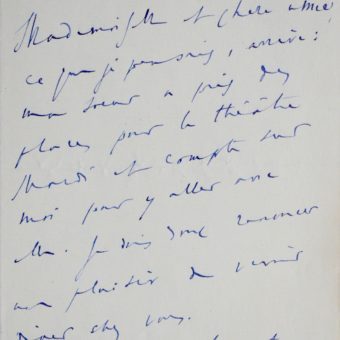 Mademoiselle et chère amie
ce que je pensais, arrive :
ma soeur a pris des
places pour le théâtre
Mardi et compte sur
moi pour y aller avec
elle. Je dois donc renoncer
au plaisir de venir
dîner chez vous.